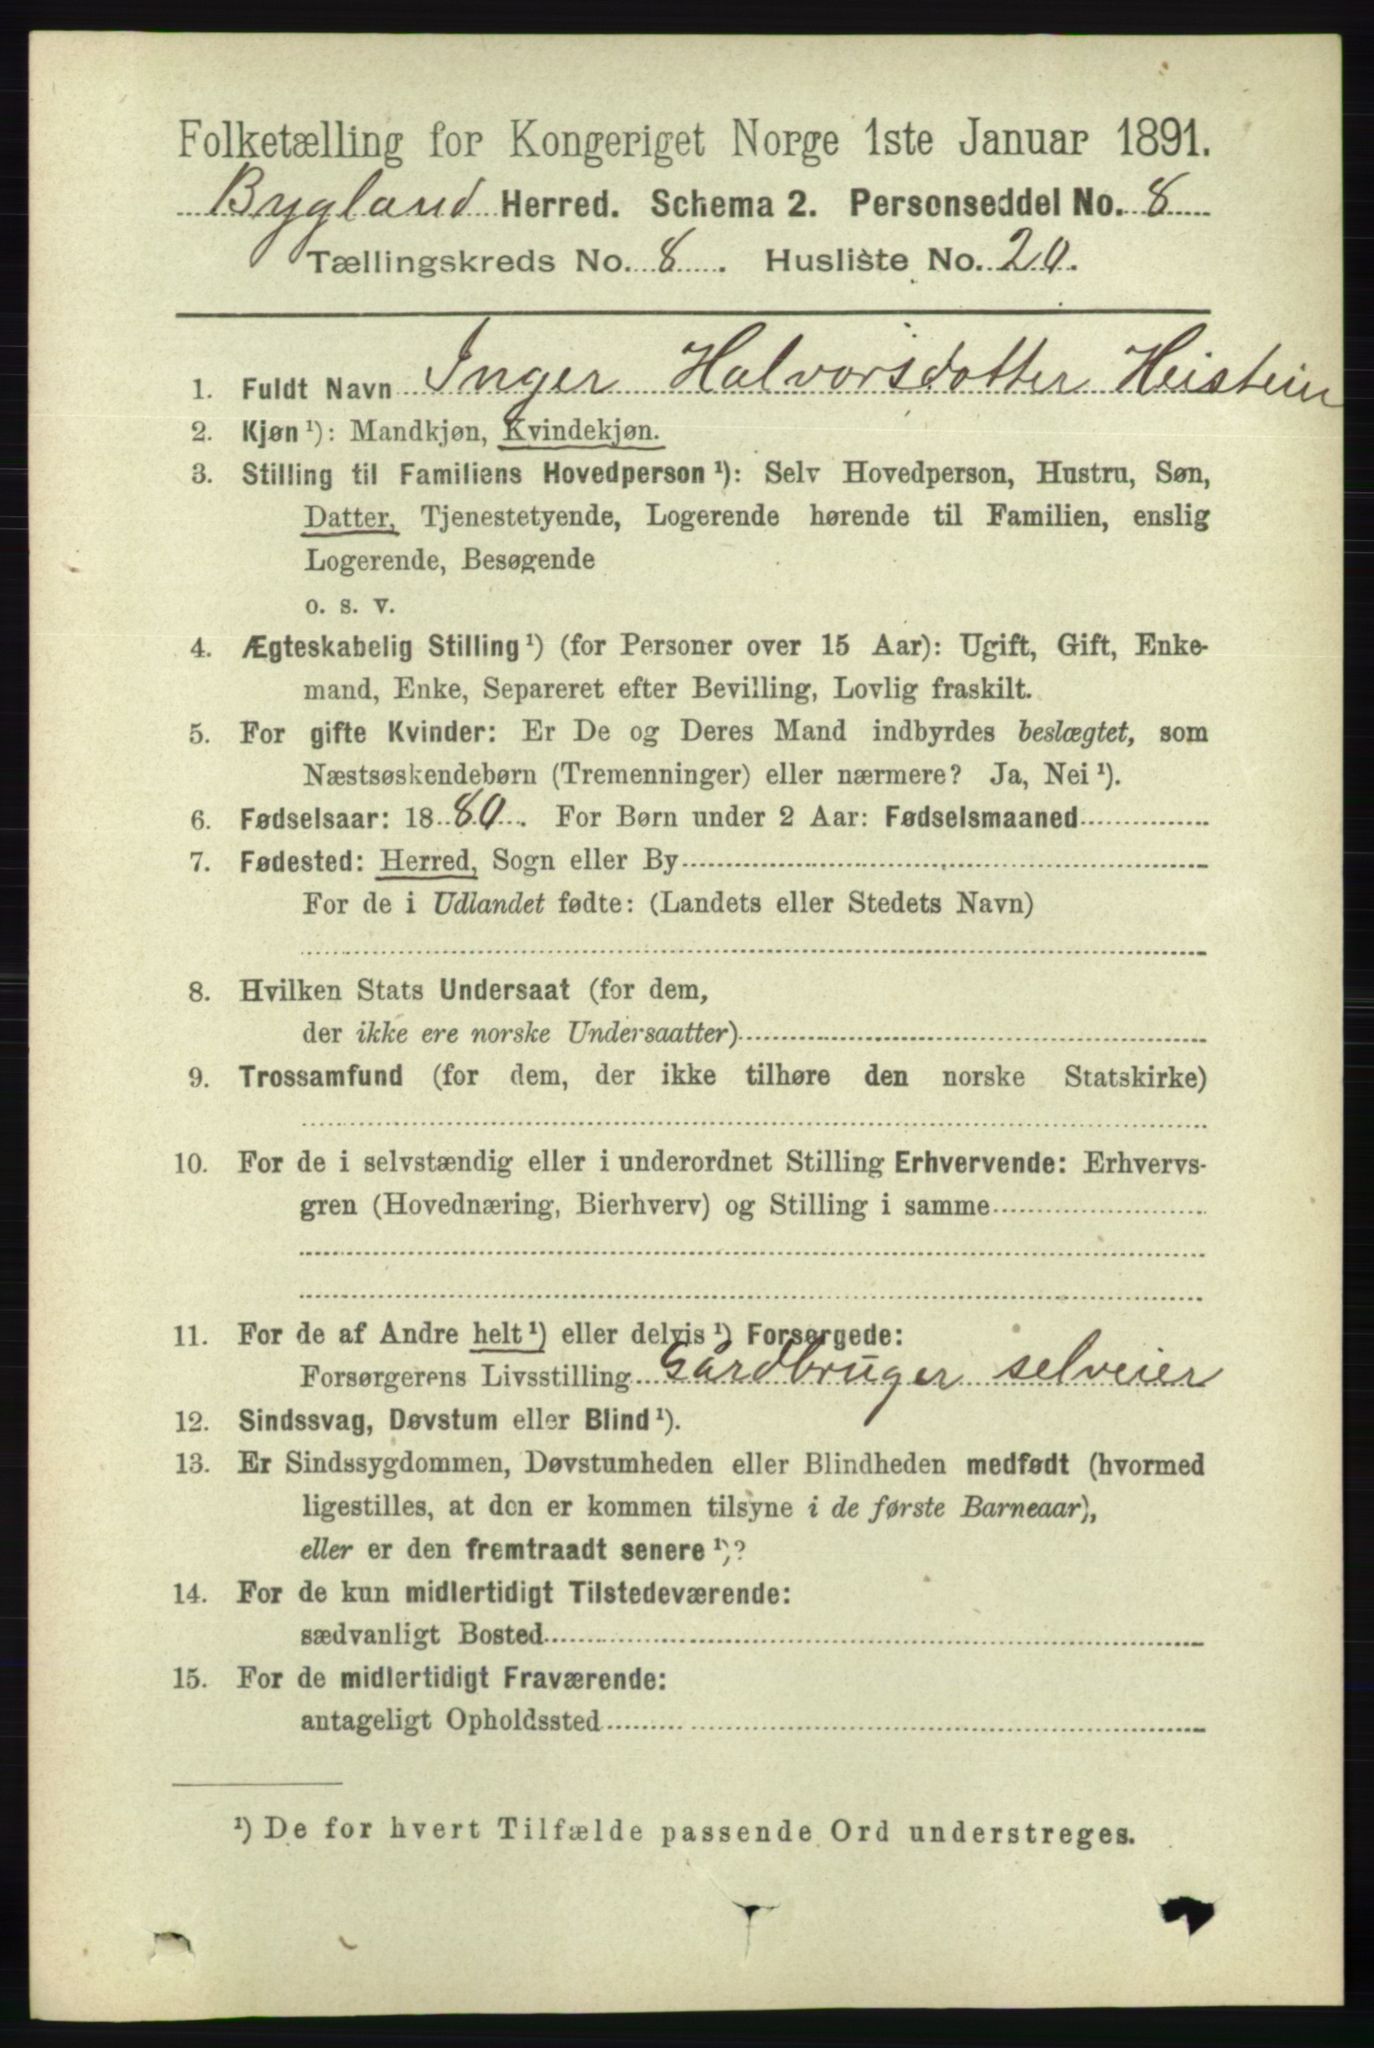 Folketælling for Kongeriget Norge 1ste Januar 1891.
Bygland Herred. Schema 2. Personseddel No. 8
Tællingskreds No. 8. Husliste No. 20.
1. Fuldt Navn Inger Halvorsdotter Heistein
2. Kjøn ¹): Mandkjøn, Kvindekjøn.
3. Stilling til Familiens Hovedperson ¹): Selv Hovedperson, Hustru, Søn,
Datter, Tjenestetyende, Logerende hørende til Familien, enslig
Logerende, Besøgende
o. s. v.
4. Ægteskabelig Stilling ¹) (for Personer over 15 Aar): Ugift, Gift, Enke-
mand, Enke, Separeret efter Bevilling, Lovlig fraskilt.
5. For gifte Kvinder: Er De og Deres Mand indbyrdes beslægtet, som
Næstsøskendebørn (Tremenninger) eller nærmere? Ja, Nei ¹).
6. Fødselsaar: 1880. For Børn under 2 Aar: Fødselsmaaned
7. Fødested: Herred, Sogn eller By
For de i Udlandet fødte: (Landets eller Stedets Navn)
8. Hvilken Stats Undersaat (for dem,
der ikke ere norske Undersaatter)
9. Trossamfund (for dem, der ikke tilhøre den norske Statskirke)
10. For de i selvstændig eller i underordnet Stilling Erhvervende: Erhvervs-
gren (Hovednæring, Bierhverv) og Stilling i samme
11. For de af Andre helt ¹) eller delvis ¹) Forsørgede:
Forsørgerens Livsstilling Gårdbruger selveier
12. Sindssvag, Døvstum eller Blind ¹).
13. Er Sindssygdommen, Døvstumheden eller Blindheden medfødt (hvormed
ligestilles, at den er kommen tilsyne i de første Barneaar),
eller er den fremtraadt senere ¹)?
14. For de kun midlertidigt Tilstedeværende:
sædvanligt Bosted
15. For de midlertidigt Fraværende:
antageligt Opholdssted
¹) De for hvert Tilfælde passende Ord understreges.